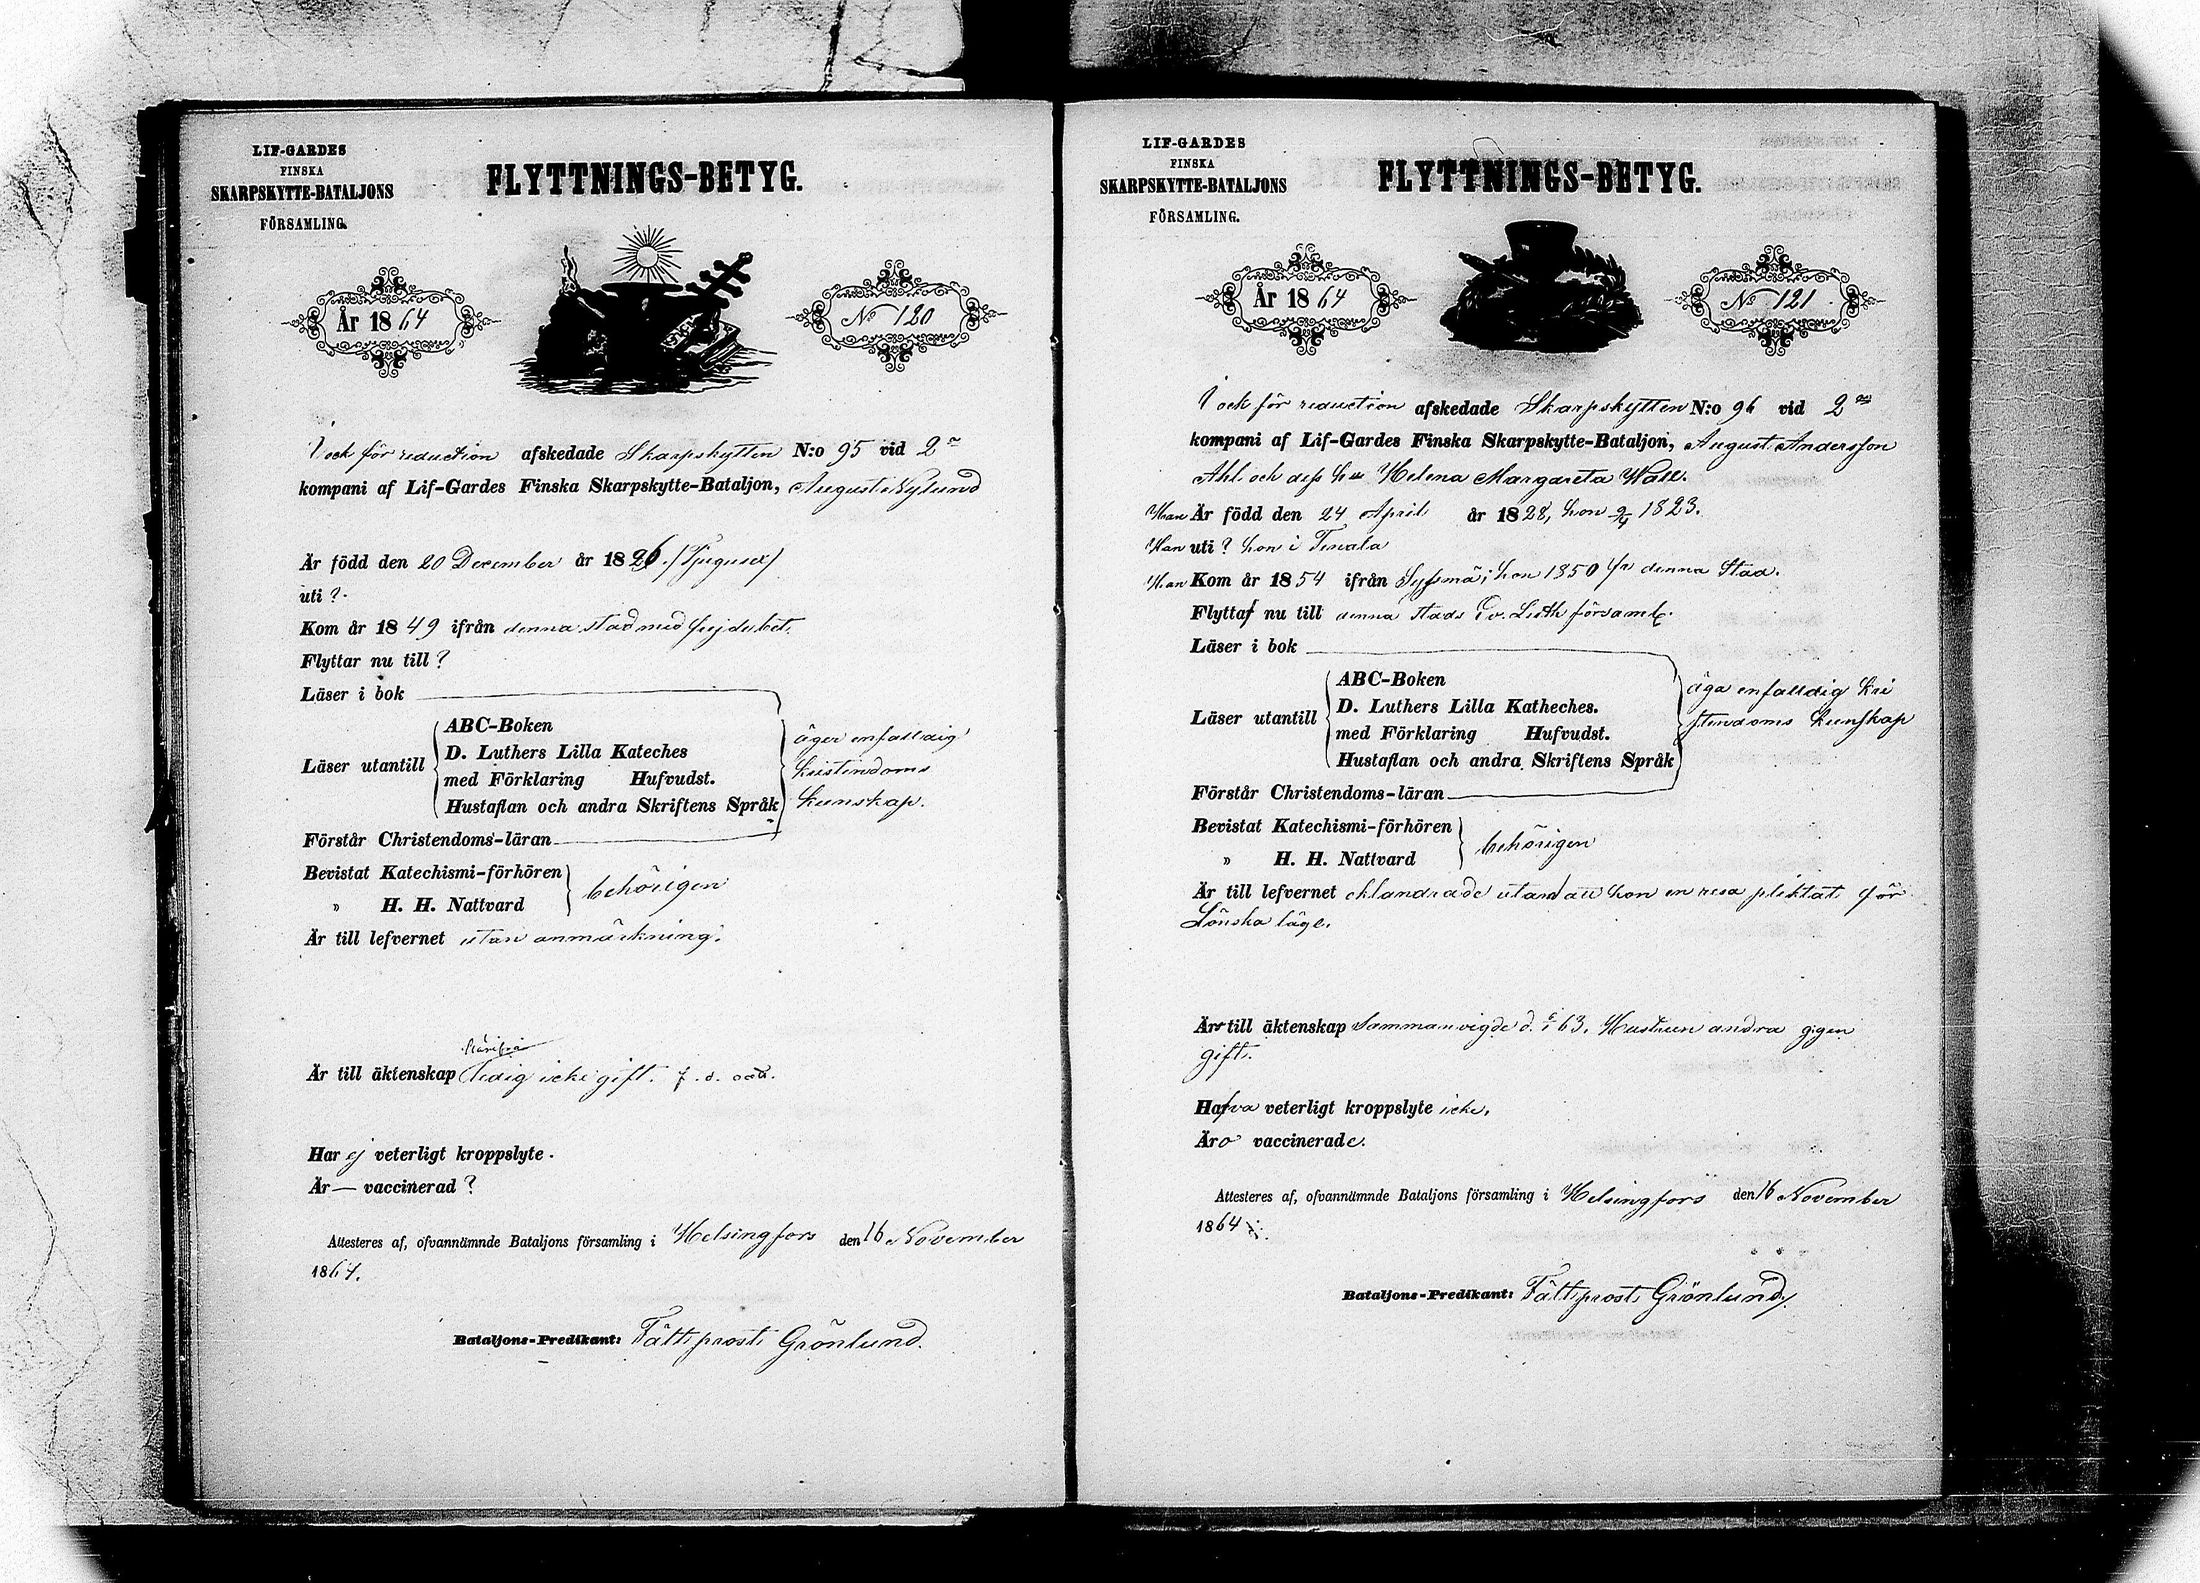 LIF-GARDES
FINSKA
SKARPSKYTTE-BATALJONS
FÖRSAMLING.
FLYTTNINGS-BETYG.
År 1864
No 120
och för reduction afskedade Skarpskytten N:o 95 vid 2
kompani af Lif-Gardes Finska Skarpskytte-Bataljon, August Nylund
Är född den 20 December år 1826. /Tjugusex/
uti ?
Kom år 1849 ifrån denna stad med frejdebet.
Flyttar nu till ?
Läser i bok
Läser utantill
ABC-Boken
D. Luthers Lilla Kateches
med Förklaring Hufvudst.
Hustaflan och andra Skriftens Språk
äger enfaldig
kristendoms
kunskap.
Förstår Christendoms-läran
Bevistat Katechismi-förhören
" H. H. Nattvard
behörigen
Är till lefvernet utan anmärkning.
härifrå
Är till äktenskap ledig icke gift.
Har ej veterligt kroppslyte.
Är — vaccinerad ?
Attesteres af, ofvannämnde Bataljons församling i Helsingfors den 16 November
1864.
Bataljons-Predikant: Fältprost Grönlund.
LIF-GARDES
FINSKA
SKARPSKYTTE-BATALJONS
FÖRSAMLING.
FLYTTNINGS-BETYG.
År 1864
No 121
och för reduction afskedade Skarpskytten N:o 96 vid 2
kompani af Lif-Gardes Finska Skarpskytte-Bataljon, August Andersson
Ahl och dess hu Helena Margareta Wall.
Han Är född den 24 April år 1828, hon 9/4 1823.
Han uti ? hon i Tenala
Han Kom år 1854 ifrån Syssmä; hon 1850 fr denna Stad.
Flytta nu till denna stads Ev. Luth församl.
Läser i bok
Läser utantill
ABC-Boken
D. Luthers Lilla Katheches.
med Förklaring Hufvudst.
Hustaflan och andra Skriftens Språk
äga enfaldig kri
stendoms kunskap
Förstår Christendoms-läran
Bevistat Katechismi-förhören
" H. H. Nattvard
behörigen
Är till lefvernet oklandrade utan att hon en resa pliktat för
Lönska läge.
Äro till äktenskap Sammanvigde d. 63. Hustrun andra ggen
gift.
Hafva veterligt kroppslyte icke.
Äro vaccinerade.
Attesteres af, ofvannämnde Bataljons församling i Helsingfors den 16 November
1864
Bataljons-Predikant: Fältprost Grönlund.